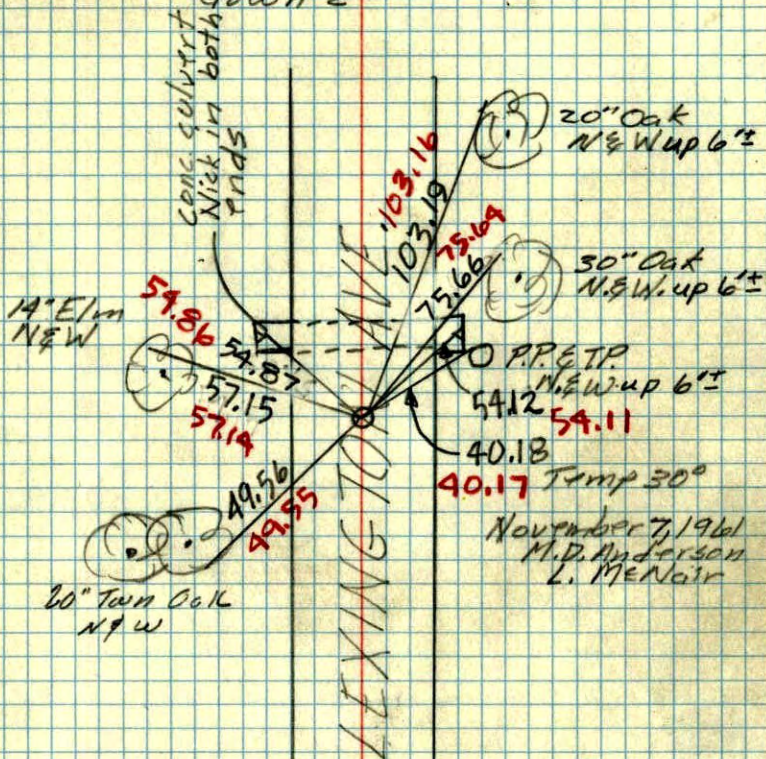 conc. culvert
Nick in both
ends
20" Oak
N & W up 6'±
103.16
103.19
75.64
75.66
30" Oak
N. & W. up 6'±
14" Elm
N & W
54.86
54.87
57.15
57.14
P.P. & T.P.
N. & W. up 6'±
54.12 54.11
40.18
40.17 Temp 30°
49.56
49.55
November 7, 1961
M.D. Anderson
L. McNair
20" Twn Oak
N & W
LEXINGTON AVE